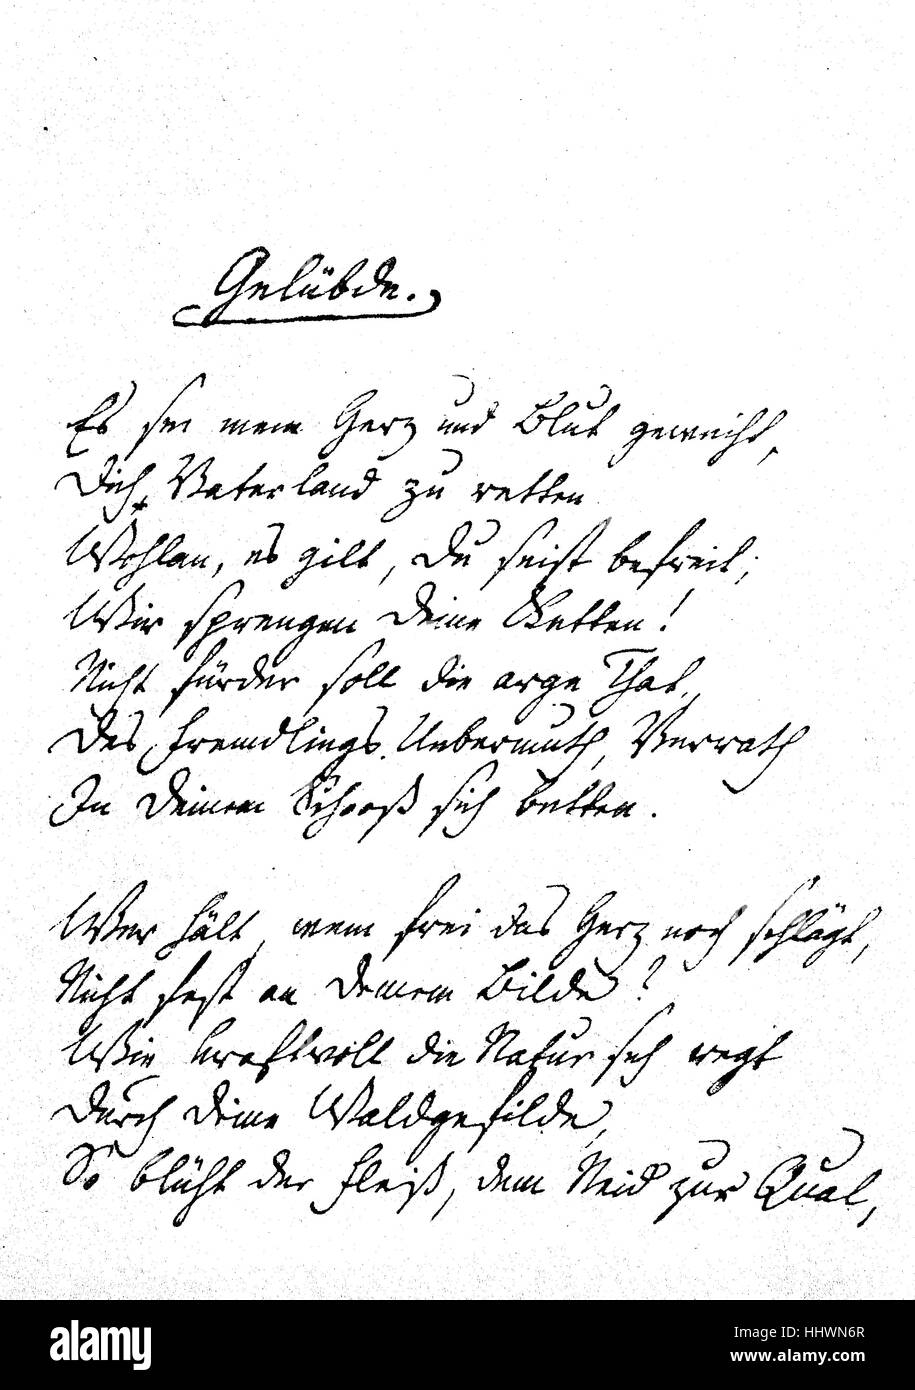 Gelübde.
Es sei mein Herz und Blut geweiht,
Dich, Vaterland zu retten
Wohlan, es gilt, Du seist befreit;
Wir sprengen Deine Ketten!
Nicht fürder soll die arge That,
Des Fremdlings Uebermuth, Verrath
In Deinem Schooß sich betten.
Wer hält, wem frei das Herz noch schlägt,
Nicht fest an Deinem Bilde?
Wie kraftvoll die Natur sich regt
Durch Deine Waldgefilde,
So blüht der Fleiß, dem Neid zur Qual,
alamy
Image ID: HHWN6R
www.alamy.com